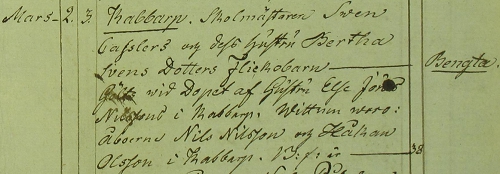 Mars - 2. 3. Kabbarp. Skolmästaren Swen
Casslers och dess Hustru Bertha
Svens Dotters Flickobarn Bengta.
wid Dopet af Hustru Else Jöns
Nilssons i Kabbarp. Wittnen woro:
Åboerne Nils Nilsson och Håkan
Olsson i Kabbarp. 38